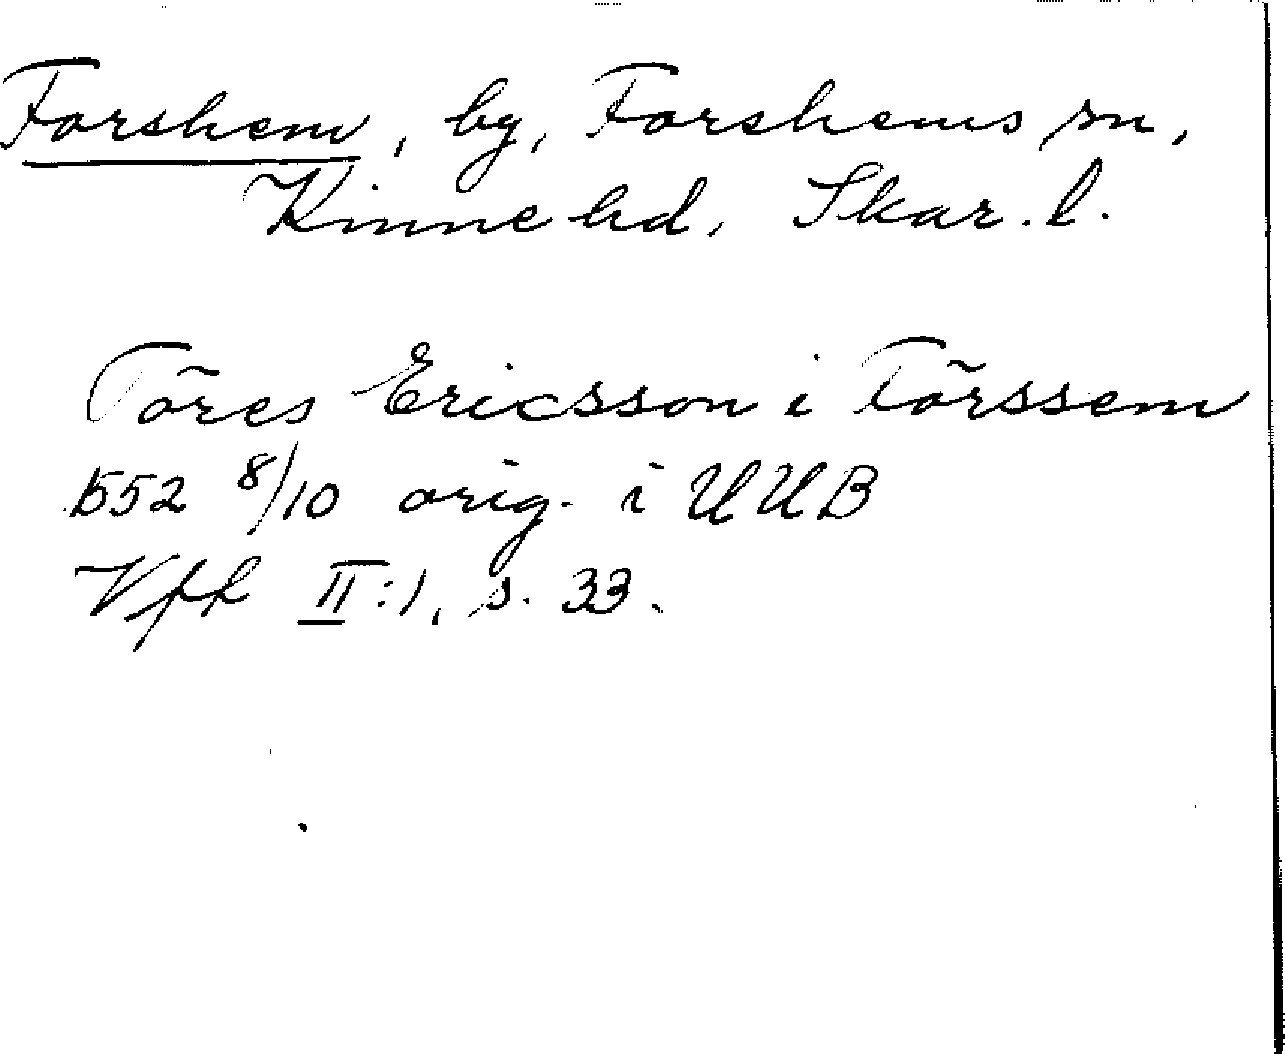 Forshem, by, Forshems sn,
Kinne hd, Skar. l.
Töres Ericsson i Förssem
1552 8/10 orig. i UUB
Vfk II:1, s. 33.